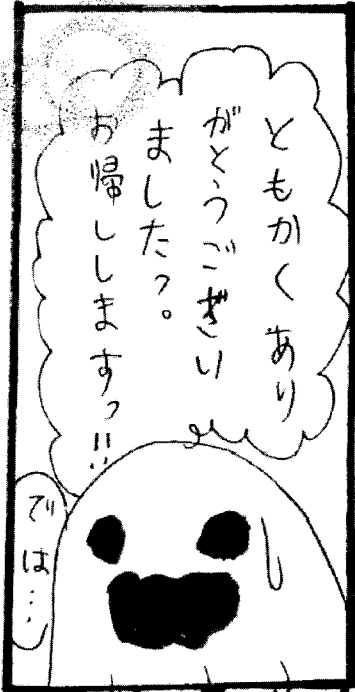 ともかくあり
がとうござい
ましたっ。
お帰ししますっ!!
では…